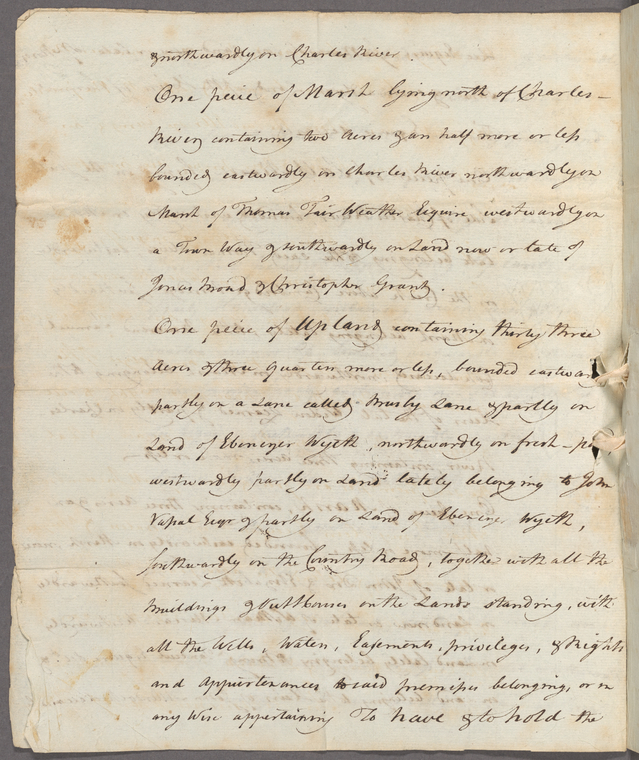 & northwardly on Charles River.
One peice of Marsh lying north of Charles-
River containing two Acres & an half more or less
bounded eastwardly on Charles River northwardly on
Marsh of Thomas Fair Weather Esquire westwardly on
a Town Way & southwardly on Land now or late of
Jonas & Christopher Grant.
One peice of Upland containing thirty three
Acres & three Quarters more or less, bounded eastward
partly on a Lane called Lane & partly on
Land of Ebenezer Wyeth, northwardly on fresh-
westwardly partly on Land lately belonging to John
Vassal Esqr & partly on Land of Ebenezer Wyeth,
southwardly on the Country Road, together with all the
Buildings & Out Houses on the Lands standing, with
all the Wells, Water, Easements, privileges, & Rights
and Appurtenances to said premises belonging, or in
any Wise appertaining To have & to hold the